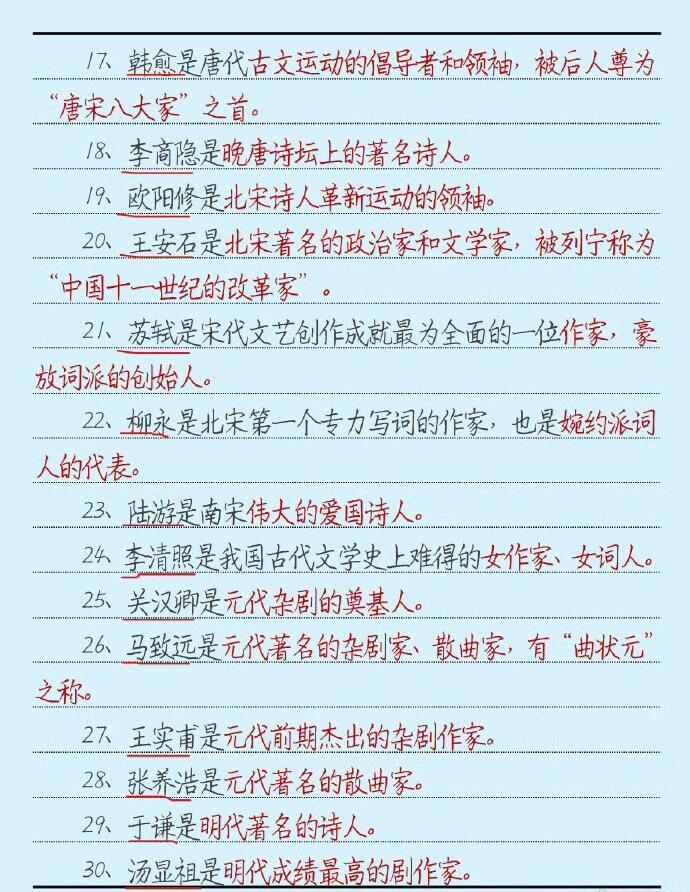 17、韩愈是唐代古文运动的倡导者和领袖，被后人尊为
“唐宋八大家”之首。
18、李商隐是晚唐诗坛上的著名诗人。
19、欧阳修是北宋诗人革新运动的领袖。
20、王安石是北宋著名的政治家和文学家，被列宁称为
“中国十一世纪的改革家”。
21、苏轼是宋代文艺创作成就最为全面的一位作家，豪
放词派的创始人。
22、柳永是北宋第一个专力写词的作家，也是婉约派词
人的代表。
23、陆游是南宋伟大的爱国诗人。
24、李清照是我国古代文学史上难得的女作家、女词人。
25、关汉卿是元代杂剧的奠基人。
26、马致远是元代著名的杂剧家、散曲家，有“曲状元”
之称。
27、王实甫是元代前期杰出的杂剧作家。
28、张养浩是元代著名的散曲家。
29、于谦是明代著名的诗人。
30、汤显祖是明代成绩最高的剧作家。